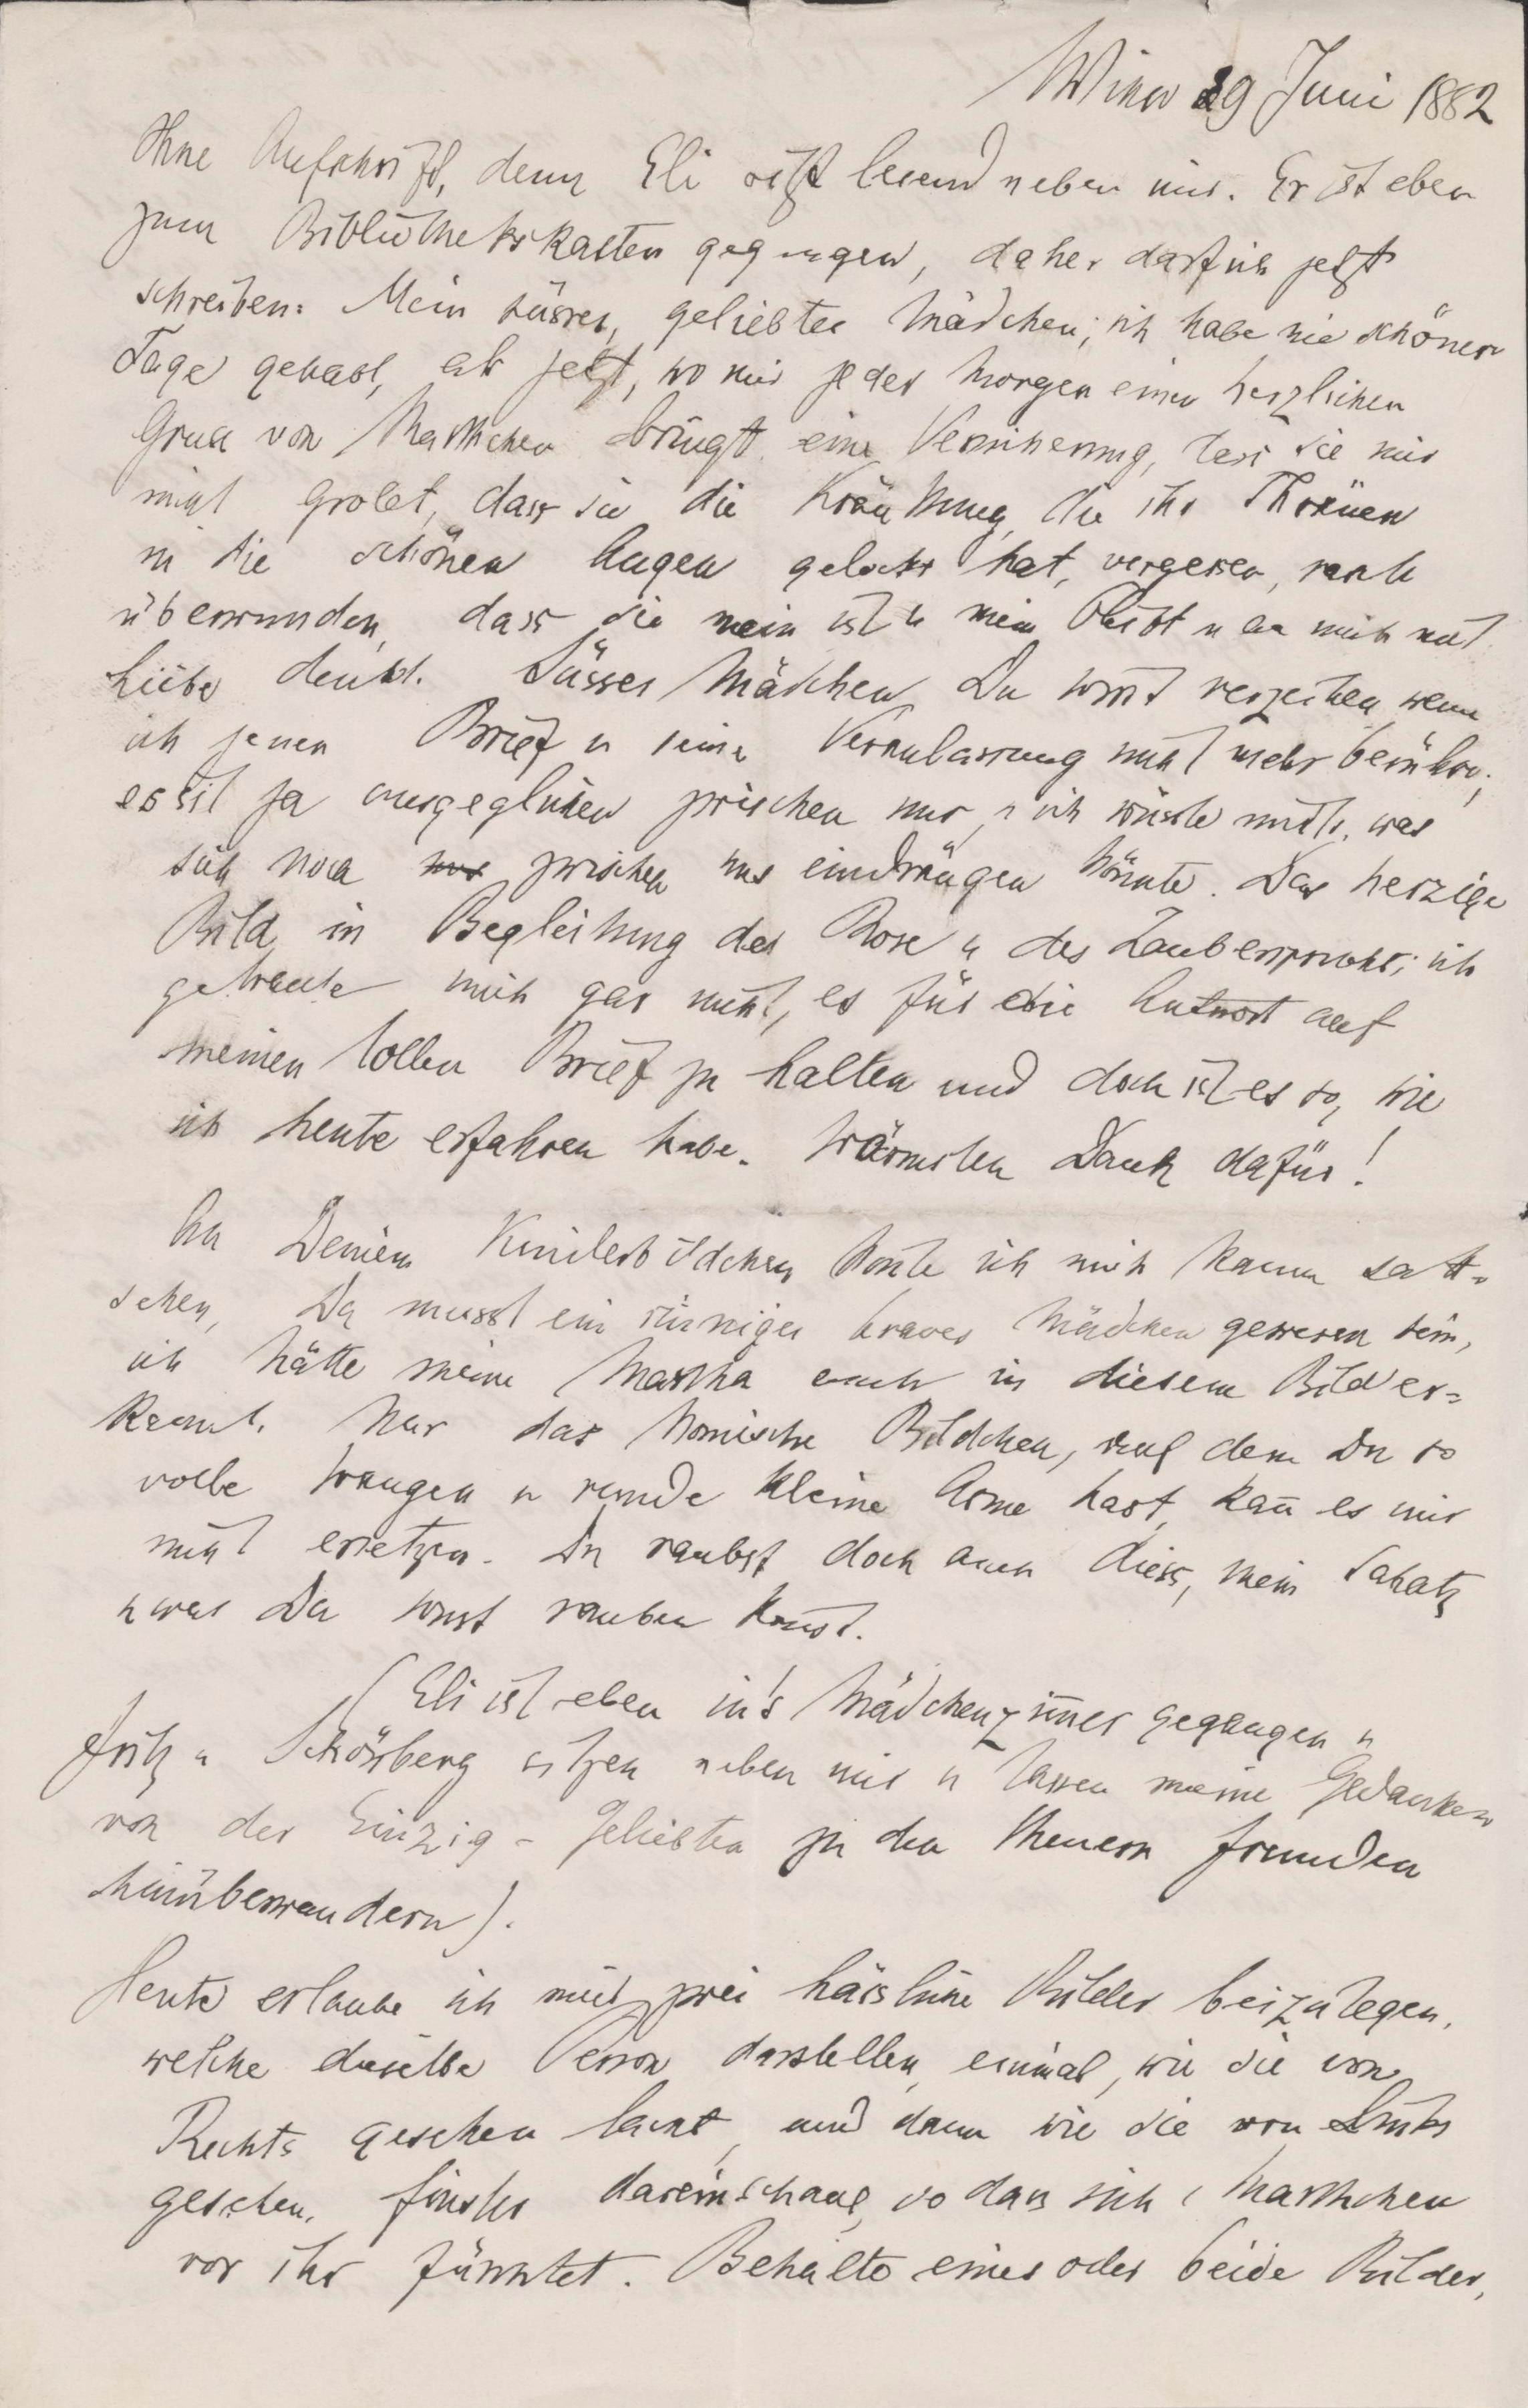 Wien 29 Juni 1882
Ohne Aufschrift, denn Eli sitzt lesend neben mir. Er ist eben
zum Bibliothekskasten gegangen, daher darf ich jetzt
schreiben: Mein süsses, geliebtes Mädchen, ich habe nie schönere
Tage gehabt, als jetzt, wo mir jeder Morgen einen herzlichen
Gruss von Marthchen bringt eine Versicherung, dass sie mir
nicht grollt, dass sie die Kränkung, die ihr Thränen
in die schönen Augen gelockt hat, vergessen, rasch
überwunden, dass sie mein ist u mein bleibt u an mich mit
Liebe denkt. Süsses Mädchen, Du wirst verzeihen, wenn
ich jenen Brief u seine Veranlassung nicht mehr berühre;
es ist ja ausgeglichen zwischen uns, u ich wüsste nicht, was
sich noch zwischen uns eindrängen könnte. Das herzige
Bild in Begleitung der Rose u des Zauberspruchs; ich
getraute mich gar nicht, es für die Antwort auf
meinen tollen Brief zu halten und doch ist es so, wie
ich heute erfahren habe. Wärmsten Dank dafür!
An Deinem Kinderbildchen konnte ich mich kaum satt-
sehen, Du musst ein sinniges braves Mädchen gewesen sein,
ich hätte meine Martha auch in diesem Bild er=
kannt. Nur das komische Bildchen, auf dem Du so
volle Wangen u runde kleine Arme hast, kan̄ es mir
nicht ersetzen. Du raubst doch auch diess, mein Schatz
u was Du sonst rauben kannst.
(Eli ist eben in's Mädchenzim̄er gegangen u
Fritz u Schönberg sitzen neben mir u lassen meine Gedanken
von der Einzig-Geliebten zu den theuern Freunden
hinüberwandern).
Heute erlaube ich mir, zwei hässliche Bilder beizulegen,
welche dieselbe Person darstellen, einmal, wie sie von
Rechts gesehen lacht, und dann wie sie von Links
gesehen, finster dareinschaut, so dass sich Marthchen
vor ihr fürchtet. Behalte eines oder beide Bilder,